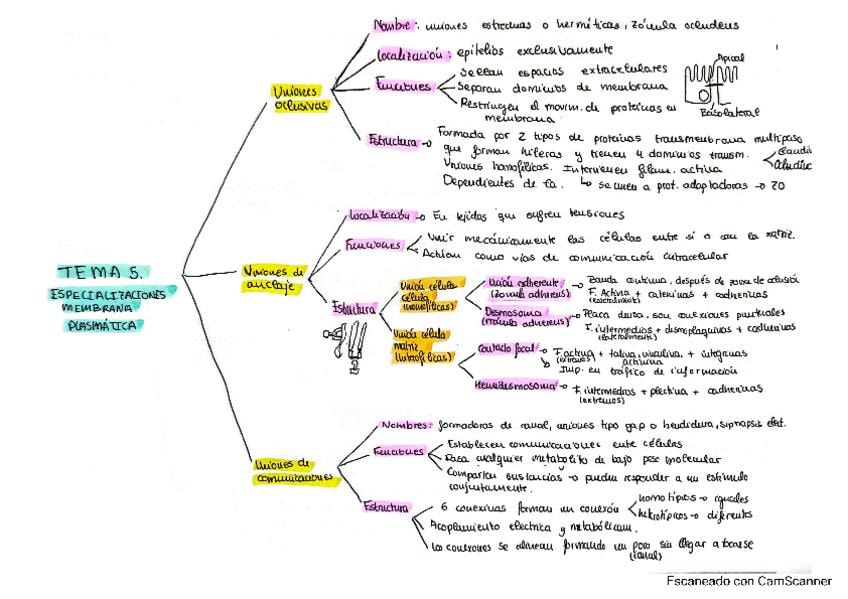 Nombre: uniones estrechas o herméticas, zónula ocludens
Localización: epitelios exclusivamente
Uniones
oclusivas
Funciones
Sellan espacios extracelulares
Separan dominios de membrana
Restringen el movim. de proteínas en
membrana
Apical
Basolateral
Estructura → Formada por 2 tipos de proteínas transmembrana multipaso
que forman hileras y tienen 4 dominios transm.
Uniones homofílicas. Intervienen filam. actina
Dependientes de Ca. ↳ se unen a prot. adaptadoras → ZO
TEMA 5.
ESPECIALIZACIONES
MEMBRANA
PLASMÁTICA
Uniones de
anclaje
Localización → En tejidos que sufren tensiones
Funciones
Unir mecánicamente las células entre sí o con la matriz.
Actúan como vías de comunicación extracelular
Estructura
Unión célula
célula
(homofílicas)
Unión adherente
(zónula adherens)
→ Banda continua, después de zona de oclusión
F. Actina + cateninas + cadherinas
Desmosoma
(mácula adherens)
→ Placa densa, son conexiones puntuales
F. intermedios + desmoplaquinas + cadherinas
(lateralmente)
Unión célula
matriz
(heterofílicas)
Contacto focal → F. actina + talina, vinculina, + integrinas
(extremos) actinina
Imp. en tráfico de información
Hemidesmosoma → F. intermedios + plectina + cadherinas
(extremos)
Uniones de
comunicaciones
Nombres: formadoras de canal, uniones tipo gap o hendidura, sipnapsis elect.
Funciones
Establecen comunicaciones entre células
Pasa cualquier metabolito de bajo peso molecular
Comparten sustancias → pueden responder a un estímulo
conjuntamente.
Estructura
6 conexinas forman un conexón
homotípicos → iguales
heterotípicos → diferentes
Acoplamiento eléctrica y metabólicam.
Los conexones se alinean formando un poro sin llegar a tocarse
(canal)
Escaneado con CamScanner